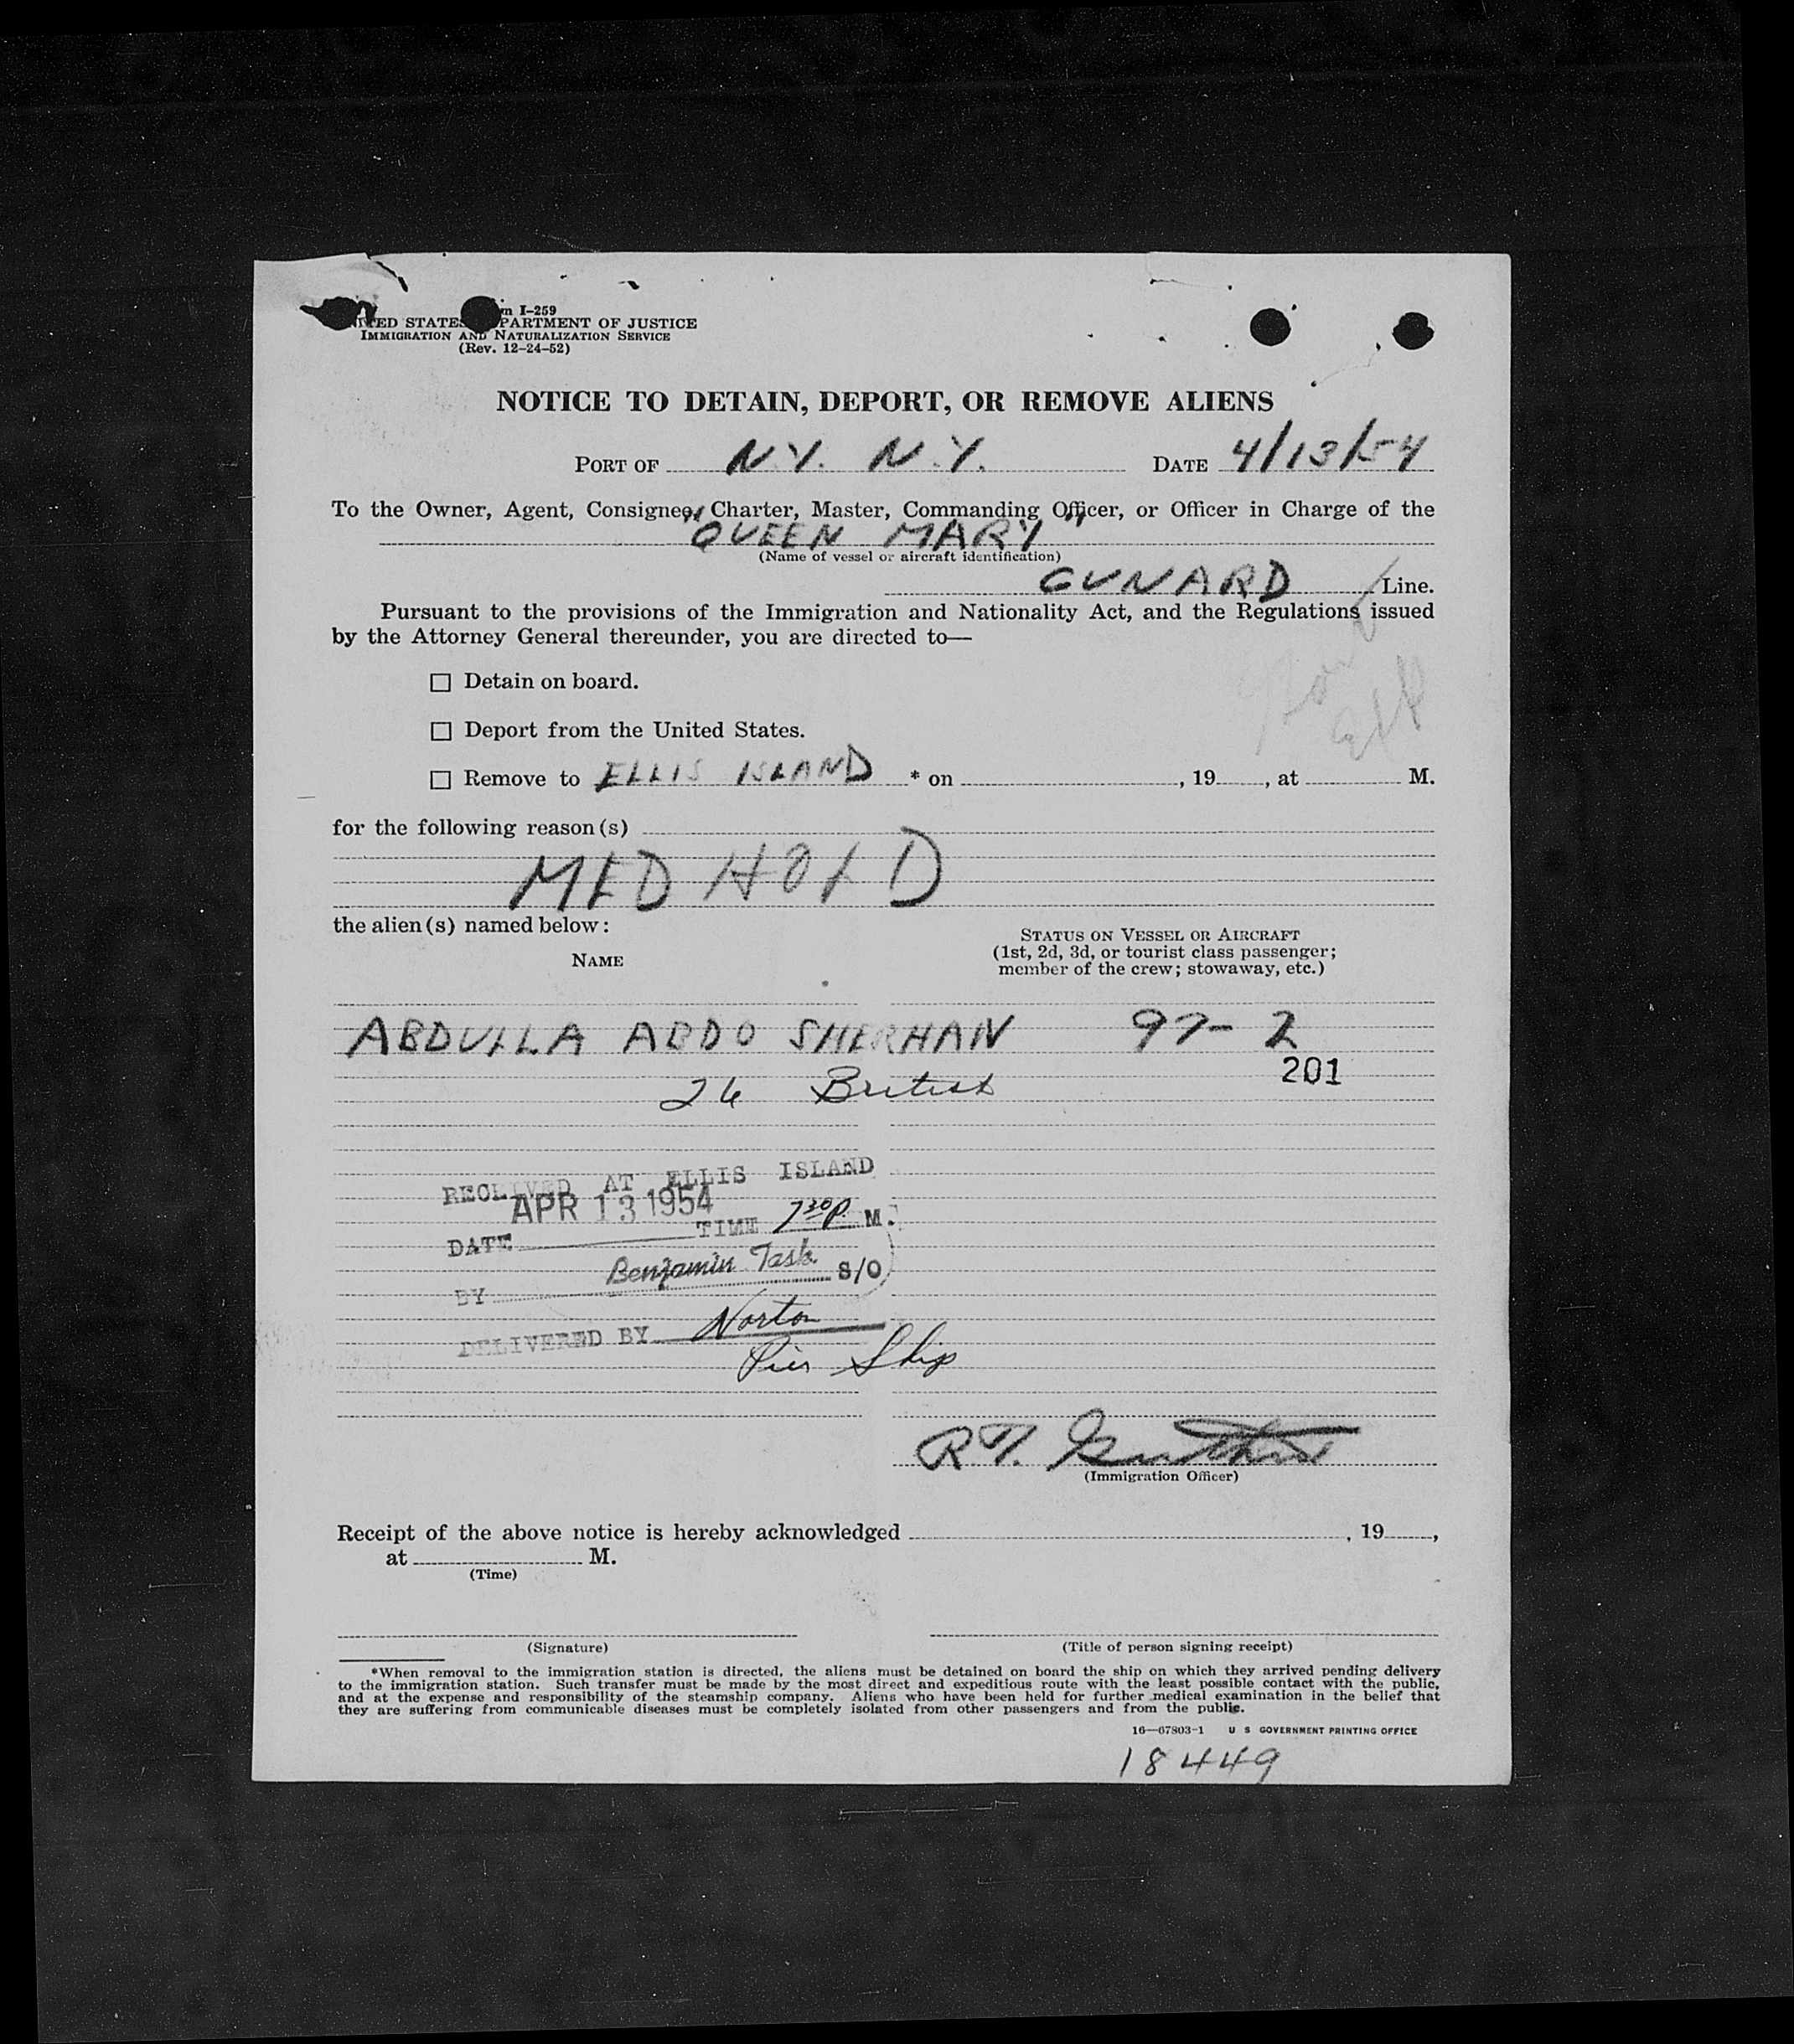 m I-259
NITED STATES PARTMENT OF JUSTICE
IMMIGRATION AND NATURALIZATION SERVICE
(Rev. 12-24-52)
NOTICE TO DETAIN, DEPORT, OR REMOVE ALIENS
PORT OF N.Y. N.Y. DATE 4/13/54
To the Owner, Agent, Consignee, Charter, Master, Commanding Officer, or Officer in Charge of the
"QUEEN MARY"
(Name of vessel or aircraft identification)
CUNARD Line.
Pursuant to the provisions of the Immigration and Nationality Act, and the Regulations issued
by the Attorney General thereunder, you are directed to—
☐ Detain on board.
☐ Deport from the United States.
☐ Remove to ELLIS ISLAND * on , 19 , at M.
for the following reason(s)
MED HOLD
the alien(s) named below:
NAME
STATUS ON VESSEL OR AIRCRAFT
(1st, 2d, 3d, or tourist class passenger;
member of the crew; stowaway, etc.)
ABDULLA ABDO SHERHAN 97-2
201
26 British
RECEIVED AT ELLIS ISLAND
APR 13 1954
DATE TIME 7 30 P. M.
BY Benjamin Task S/O
DELIVERED BY Norton
Pier Ship
R T.
(Immigration Officer)
Receipt of the above notice is hereby acknowledged , 19 ,
at M.
(Time)
(Signature) (Title of person signing receipt)
*When removal to the immigration station is directed, the aliens must be detained on board the ship on which they arrived pending delivery
to the immigration station. Such transfer must be made by the most direct and expeditious route with the least possible contact with the public,
and at the expense and responsibility of the steamship company. Aliens who have been held for further medical examination in the belief that
they are suffering from communicable diseases must be completely isolated from other passengers and from the public.
16—67803-1 U S GOVERNMENT PRINTING OFFICE
18449